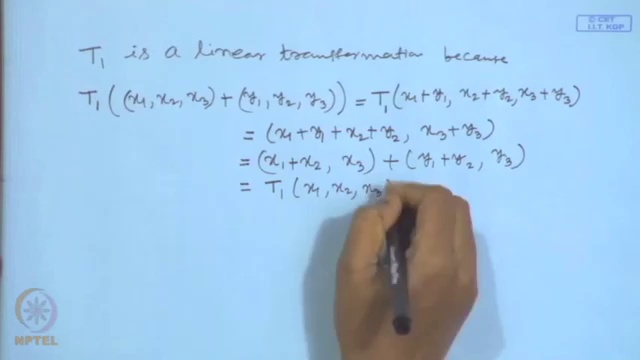 © CET
I.I.T. KGP
T₁ is a linear transformation because
T₁((x₁, x₂, x₃) + (y₁, y₂, y₃)) = T₁(x₁+y₁, x₂+y₂, x₃+y₃)
= (x₁+y₁+x₂+y₂, x₃+y₃)
= (x₁+x₂, x₃) + (y₁+y₂, y₃)
= T₁(x₁, x₂, x₃)
NPTEL